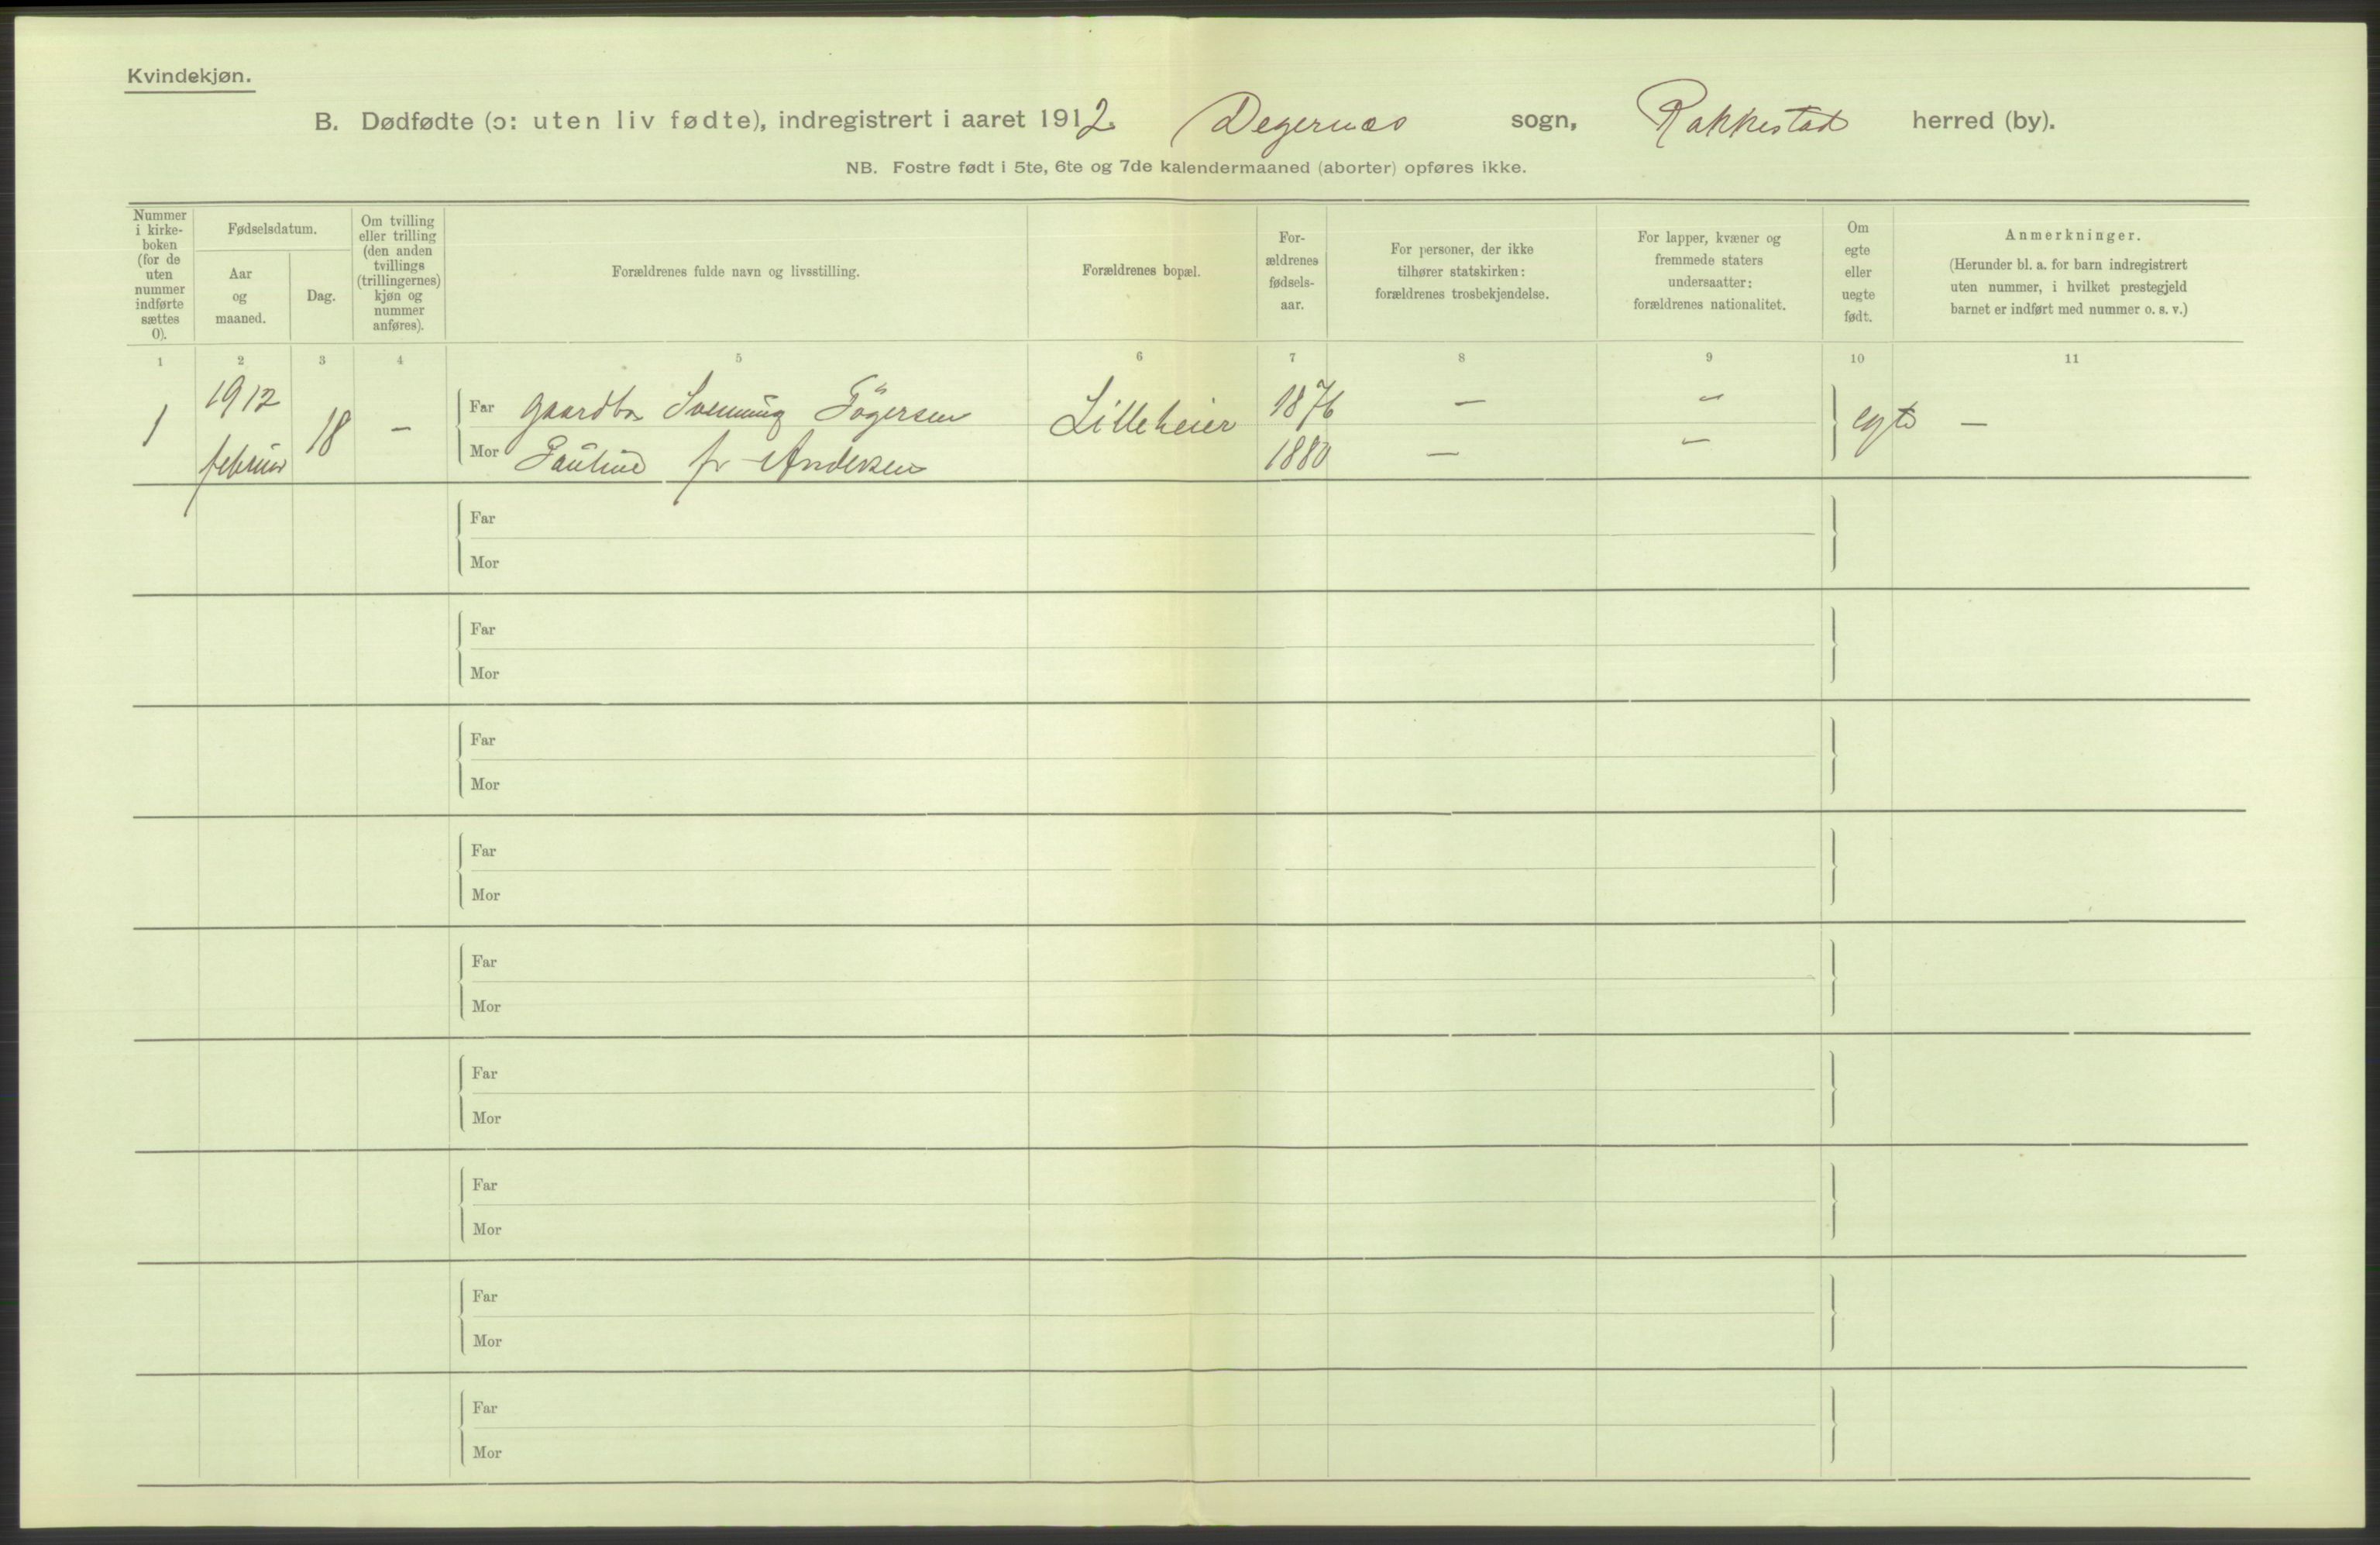 Kvindekjøn.
B. Dødfødte (ɔ: uten liv fødte), indregistrert i aaret 1912 Degernæs sogn, Rakkestad herred (by).
NB. Fostre født i 5te, 6te og 7de kalendermaaned (aborter) opføres ikke.
Nummer
i kirke-
boken
(for de
uten
nummer
indførte
sættes
0).
Fødselsdatum.
Aar
og
maaned.
Dag.
Om tvilling
eller trilling
(den anden
tvillings
(trillingernes)
kjøn og
nummer
anføres).
Forældrenes fulde navn og livsstilling.
Forældrenes bopæl.
For-
ældrenes
fødsels-
aar.
For personer, der ikke
tilhører statskirken:
forældrenes trosbekjendelse.
For lapper, kvæner og
fremmede staters
undersaatter:
forældrenes nationalitet.
Om
egte
eller
uegte
født.
Anmerkninger.
(Herunder bl. a. for barn indregistrert
uten nummer, i hvilket prestegjeld
barnet er indført med nummer o. s. v.)
1 2 3 4 5 6 7 8 9 10 11
1 1912 februar 18 –
Far gaardbr Svenning Lilleheier 1876 – –
Mor Pauline fr Andersen 1880 – –
egte –
Far
Mor
Far
Mor
Far
Mor
Far
Mor
Far
Mor
Far
Mor
Far
Mor
Far
Mor
Far
Mor